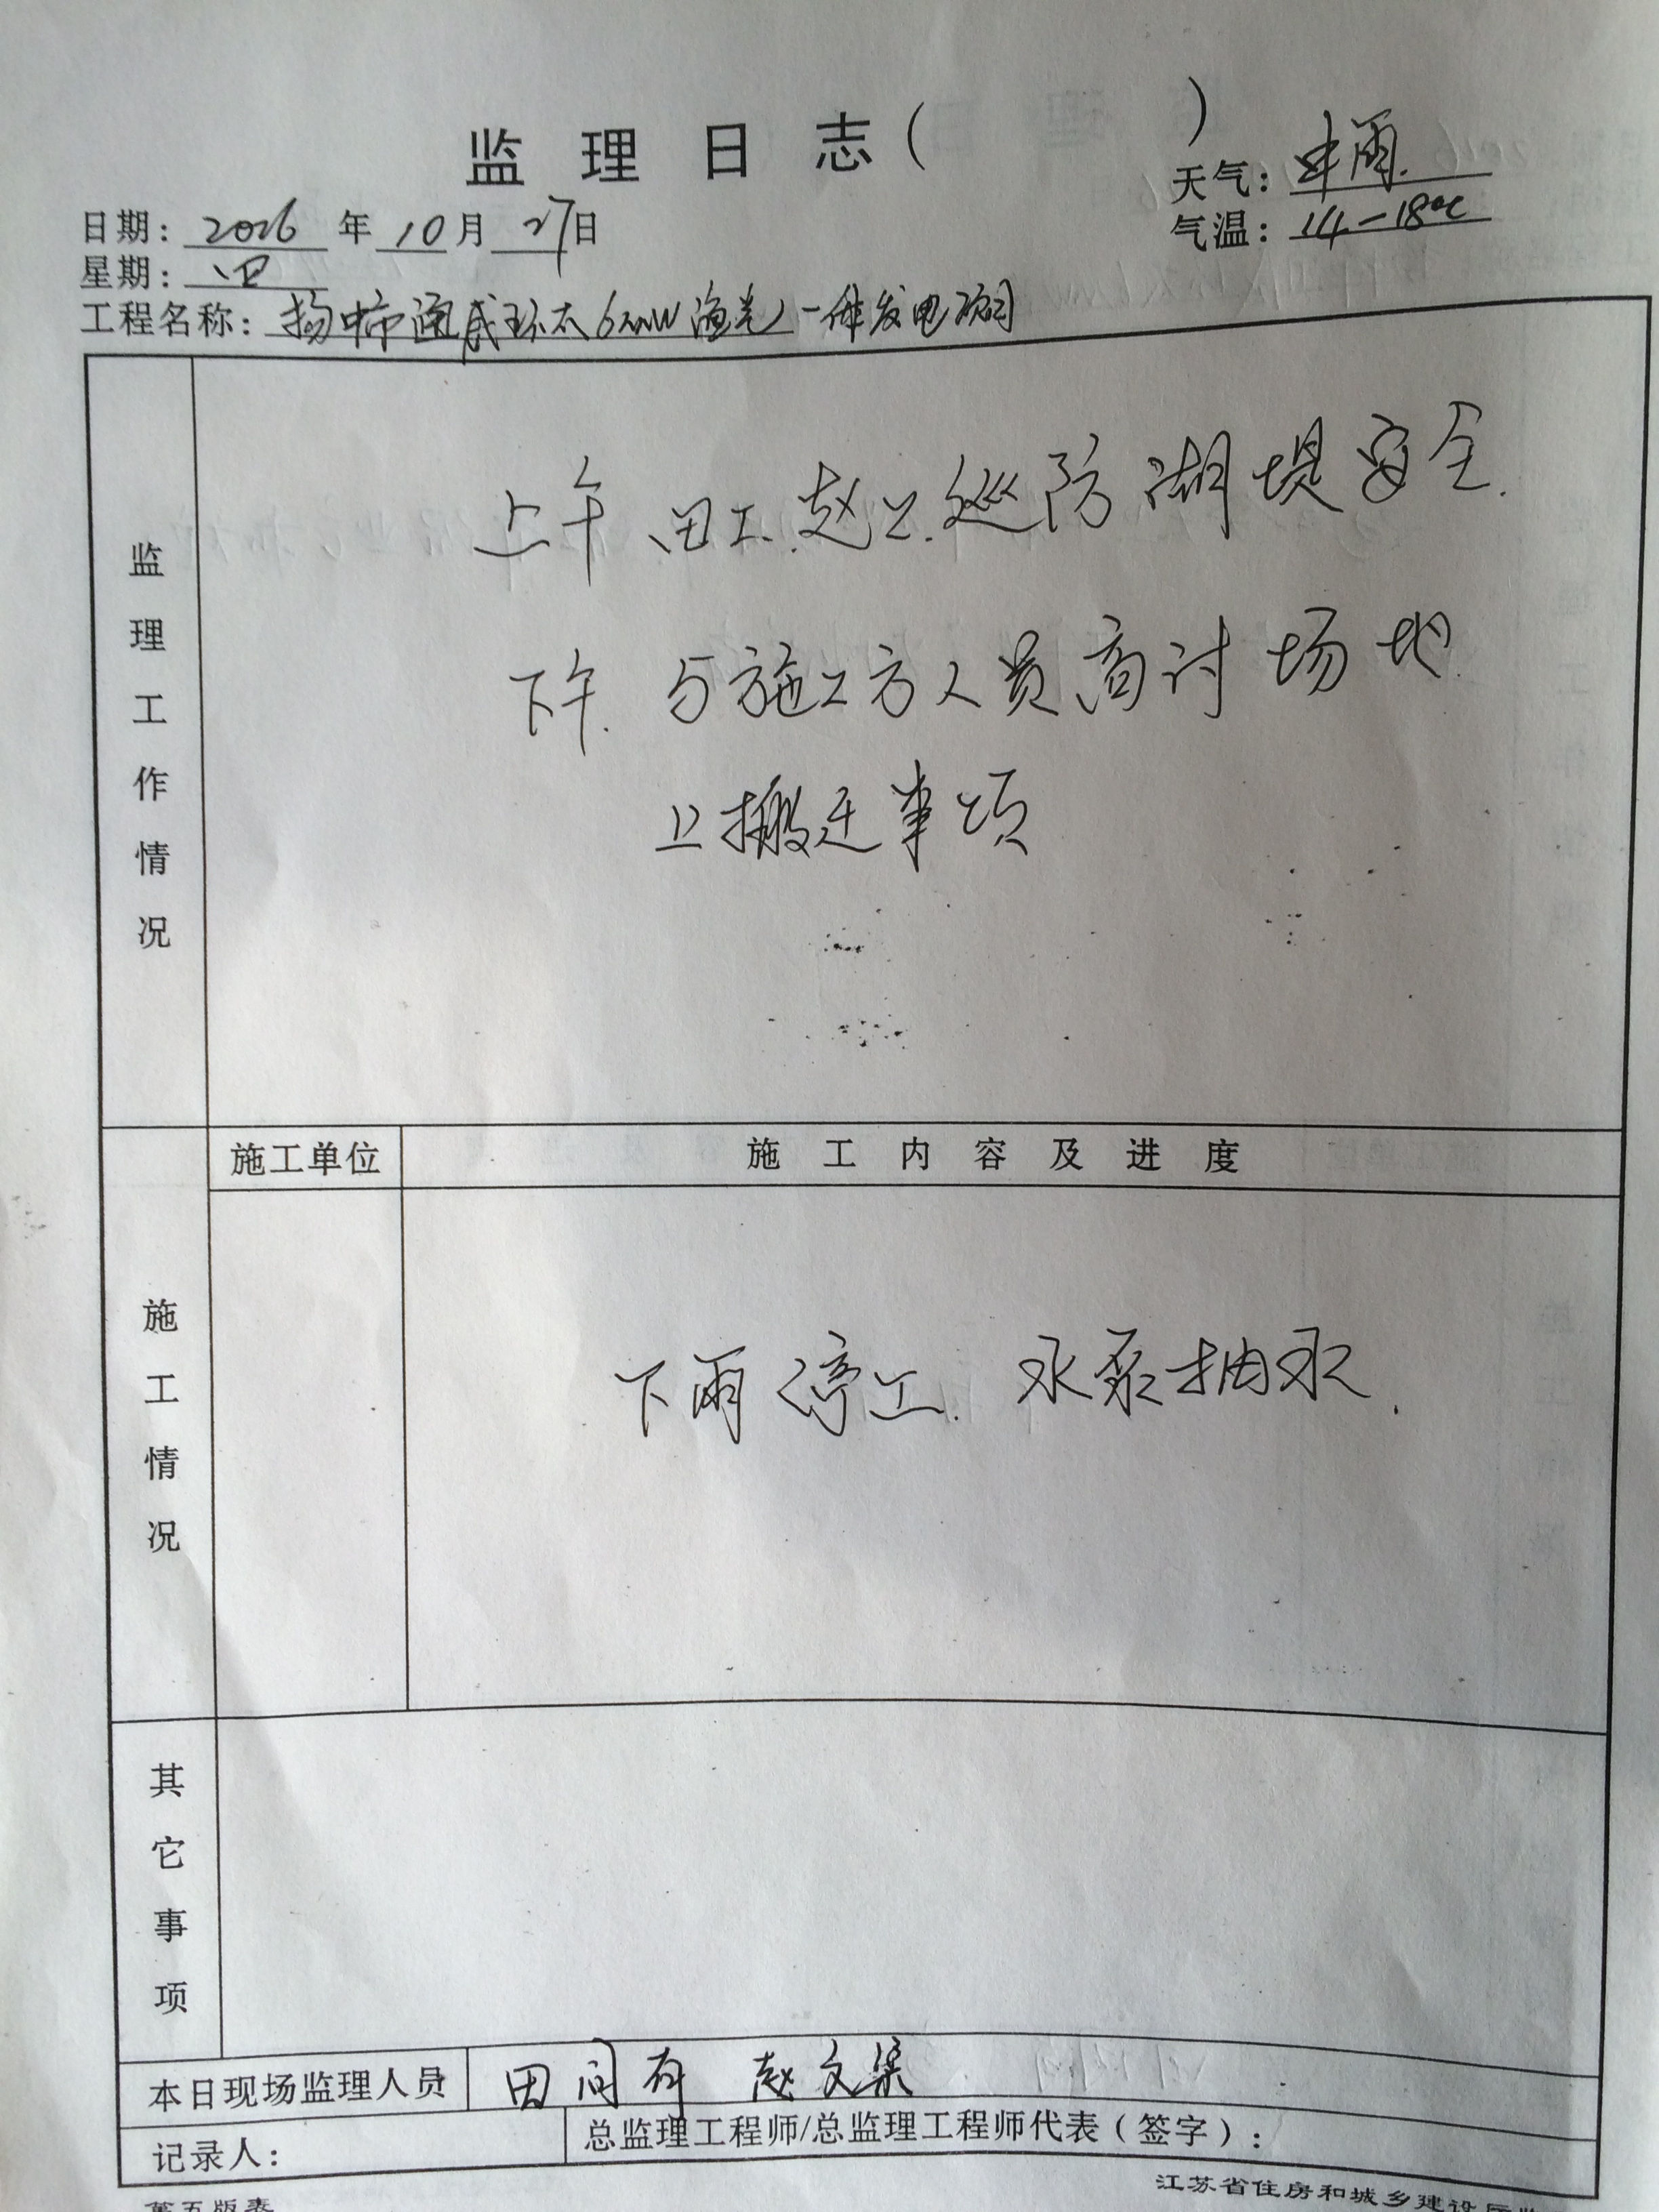 监理日志（ ）
天气：中雨
日期：2016年10月27日
气温：14-18℃
星期：四
工程名称：扬中市通威环太 渔光一体发电项目
监理工作情况
上午 田工.赵工.巡防湖堤安全.
下午. 与施工方人员商讨场地
上搬迁事项
施工单位
施工内容及进度
施工情况
下雨停工. 水泵抽水.
其它事项
本日现场监理人员 田 赵文
记录人：
总监理工程师/总监理工程师代表（签字）：
第五版表
江苏省住房和城乡建设厅